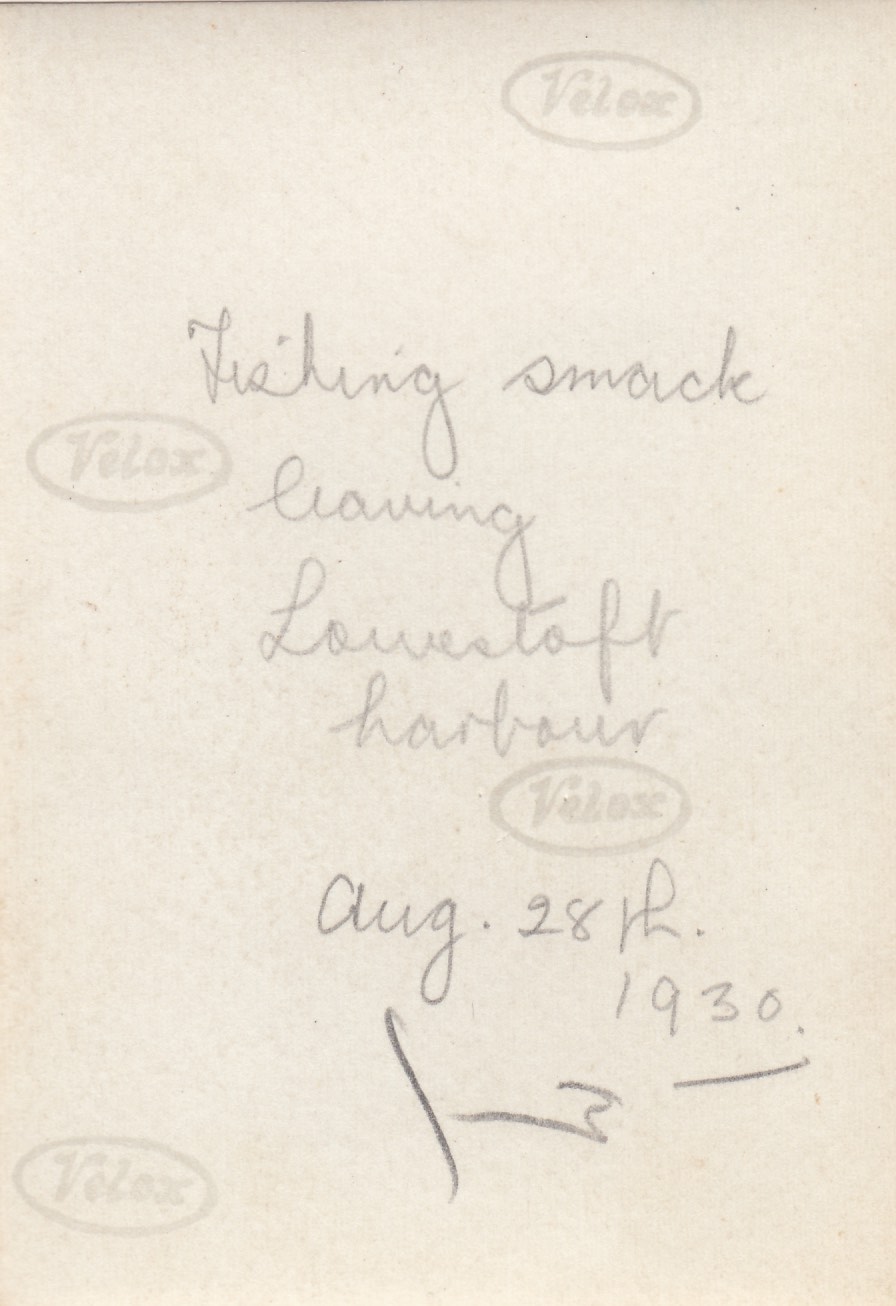 Velox
Fishing smack
Velox
leaving
Lowestoft
harbour
Velox
Aug. 28th.
1930.
Velox